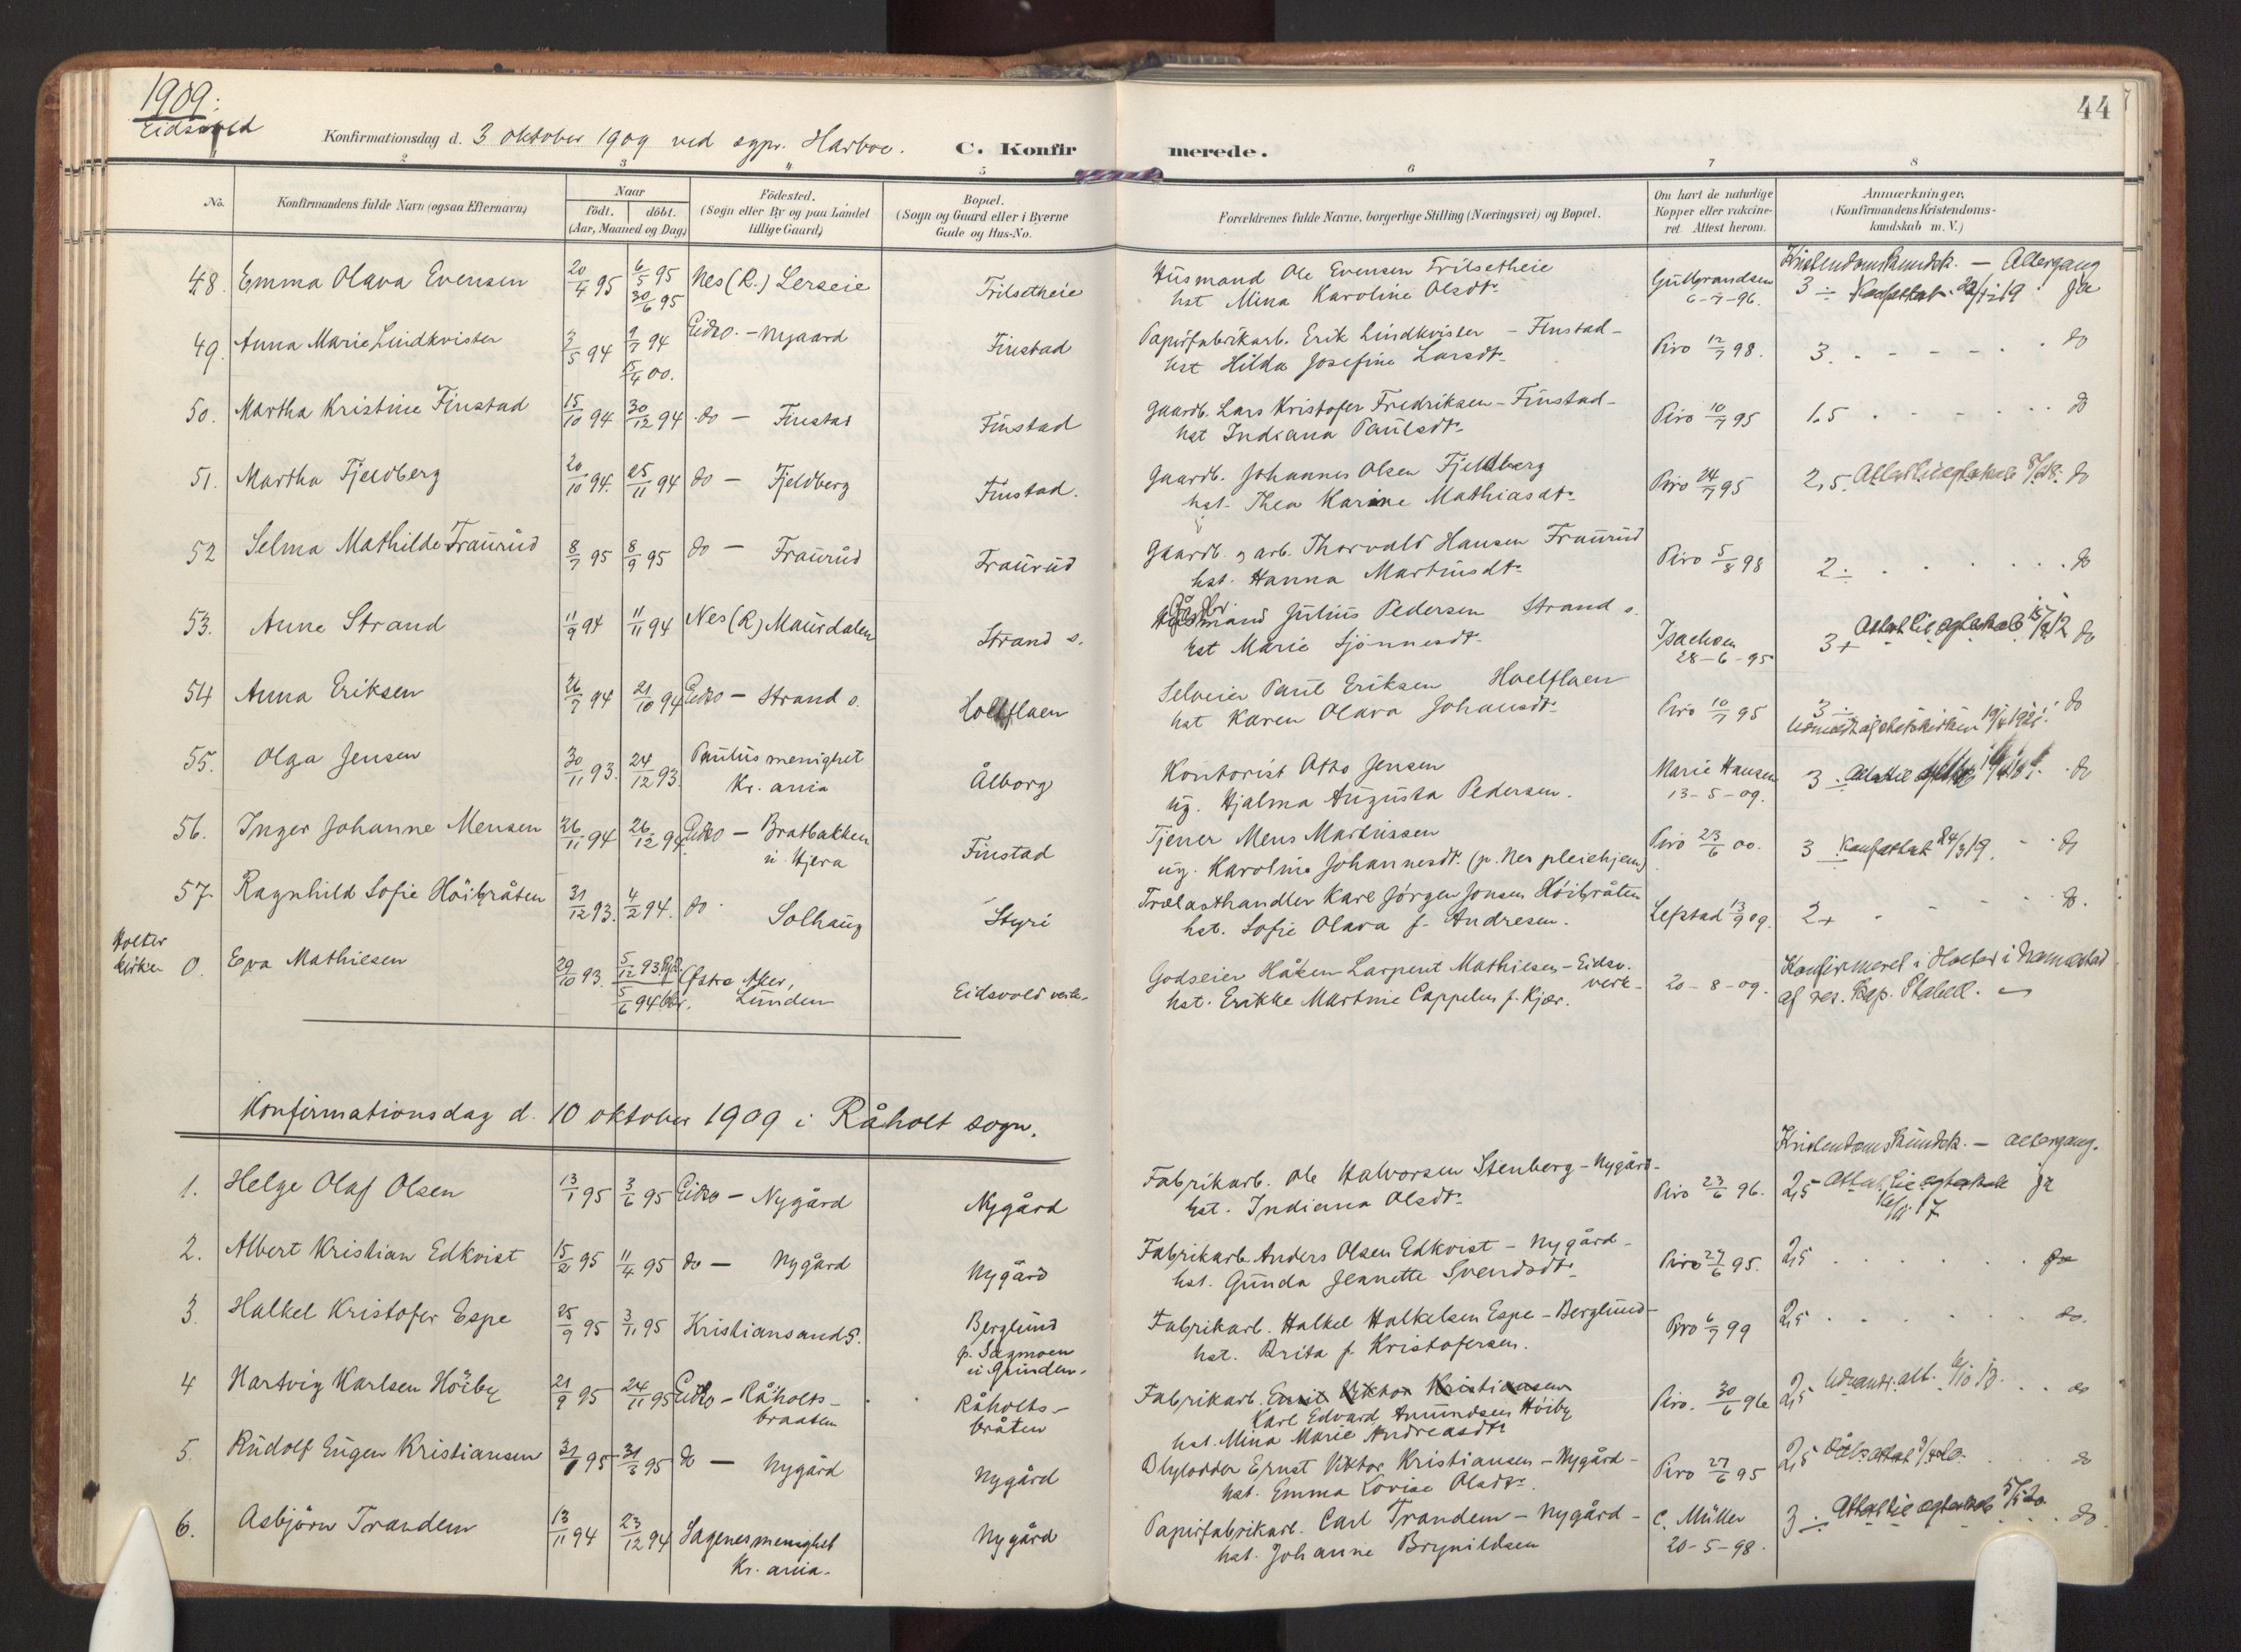 1909.
Eidsvold
44
Konfirmationsdag d. 3 oktober 1909 ved sgpr. Harboe. C. Konfirmerede.
2 3 4 5 6 7 8
No. Konfirmandens fulde Navn (ogsaa Efternavn) Naar født. døbt. (Aar, Maaned og Dag.) Födested. (Sogn eller By og paa Landet tillige Gaard) Bopæl. (Sogn og Gaard eller i Byerne Gade og Hus-No. Forældrenes fulde Navne, borgerlige Stilling (Næringsvei) og Bopæl. Om havt de naturlige Kopper eller vakcineret. Attest herom. Anmærkninger, (Konfirmandens Kristendomskundskab m. V.)
Kristendomskundsk. — Altergang
48. Emma Olava Evensen 20/4 95 6/5 95 30/6 95 Nes (R.) Lerseie Trilsetheie Husmand Ole Evensen Trilsetheie
hst Mina Karoline Olsdt. Gulbrandsen 6-7-96. 3 ja
49. Anna Marie Lindkvister 3/5 94 9/7 94 5/4 00. Eidsv. - Nygaard Finstad Papirfabrikarb. Erik Lindkvister - Finstad -
hst Hilda Josefine Larsdt. Piro 12/7 98. 3. do
50. Martha Kristine Finstad 15/10 94 30/12 94 do - Finstad Finstad Gaardb. Lars Kristofer Fredriksen - Finstad -
hst Indiana Paulsdt. Piro 10/7 95 1.5 do
51. Martha Fjeldberg 20/10 94. 25/11 94 do - Fjeldberg Finstad. Gaardb. Johannes Olsen Fjeldberg
hst. Thea Karine Mathiasdt. Piro 24/7 95 2,5. do
52 Selma Mathilde Fraurud 8/7 95 8/9 95 do - Fraurud Fraurud Gaardb. og arb. Thorvald Hansen Fraurud
hst. Hanna Martinsdt. Piro 5/8 98 2 do
53. Anne Strand 11/9 94 11/11 94 Nes (R) Maurdalen Strand s. Husmand Julius Pedersen Strand s.
hst Marie Sjönnesdt. Isachsen 28-6-95 3+ do
54 Anna Eriksen 26/7 94 21/10 94 Eidsv - Strand s. Holtflaen Selveier Paul Eriksen Hoelflaen
hst Karen Olava Johansdt. Piro 10/7 95 3 do
55. Olga Jensen 30/11 93. 24/12 93. Paulus menighet Kr. ania Ålborg Kontorist Otto Jensen
ug. Hjalma Augusta Pedersen. Marie Hansen 13-5-09. 3 do
56. Inger Johanne Mensen 26/11 94 26/12 94 Eidsv - Bratbakken u. Hjera Finstad Tjener Mens Martinssen
ug. Karoline Johannesdt. (p. Nes pleiehjem) Piro 23/6 00. 3 do
57. Ragnhild Sofie Höibråten 31/12 93. 4/2 94. do Solhaug Styri Trælasthandler Karl Jörgen Jonsen Höibråten
hst. Sofie Olava f. Andresen. Lefstad 13/9 09. 2+ do.
Holter kirke 0. Eva Mathiesen 29/10 93. 5/12 93. 5/6 94 Østre Aker, Linden Eidsvold verk. Godseier Håken Larpent Mathiesen - Eidsv. verk -
hst. Erikke Martine Cappelen f. Kjær. 20-8-09. Konfirmeret i Holter i Nannestad
af res. kap. Stabell.
Konfirmationsdag d. 10 oktober 1909 i Råholt sogn.
Kristendomskundsk. — altergang.
1. Helge Olaf Olsen 13/1 95 3/6 95 Eidsv - Nygård Nygård Fabrikarb. Ole Halvorsen Stenberg - Nygård -
hst. Indiana Olsdt. Piro 23/6 96. 2,5 ja
2. Albert Kristian Edkvist 15/2 95 11/4 95 do - Nygård Nygård Fabrikarb. Anders Olsen Edkvist - Nygård -
hst. Gunda Jeanette Svendsdt. Piro 27/6 95. 2,5 do
3. Halkel Kristofer Espe 25/9 95 3/11 95 Kristiansand S. Berglund p. Sagmoen u. Grinden. Fabrikarb. Halkel Halkelsen Espe - Berglund -
hst. Brita f. Kristofersen. Piro 6/7 99 2,5 do.
4 Hartvig Karlsen Höiby 21/9 95 24/11 95 Eidsv - Råholtsbraaten Råholtsbråten Fabrikarb. Ernst Viktor Kristiansen
Karl Edvard Amundsen Höiby
hst. Mina Marie Andreasdt. Piro. 30/6 96 2,5 do
5. Rudolf Eugen Kristiansen 31/1 95 31/3 95 do - Nygård Nygård Blylodder Ernst Viktor Kristiansen - Nygård -
hst. Emma Lovise Olsdt. Piro 27/6 95 2,5 do
6. Asbjörn Trandem 13/11 94 23/12 94 Sagenes menighet Kr. ania. Nygård Papirfabrikarb. Carl Trandem - Nygård -
hst. Johanne Brynildsen C. Müller 20-5-98. 3 do.